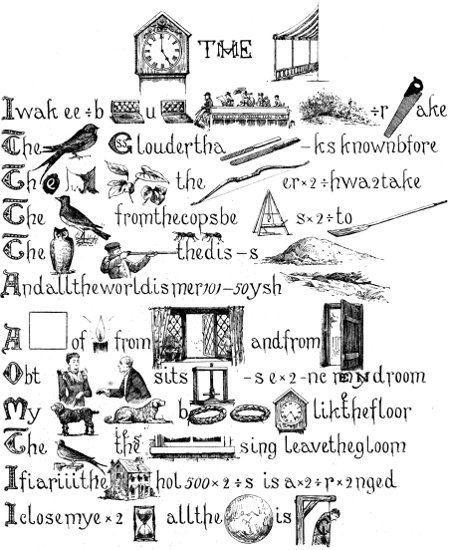 THE
I wak ee ÷ b u ÷ r ake
The Cloudertha – ksknownbfore
The the er × 2 ÷ hwa2take
The fromthecopsbe s × 2 ÷ to
The thedis – s
Andalltheworldismer101–50ysh
A of from andfrom
Obt sits – s e × 2 – nc room
My b likthefloor
The the singleavethegloom
Ifiariiithe hol 500 × 2 ÷ s is a × 2 ÷ r × 2nged
Iclosemye × 2 allthe is